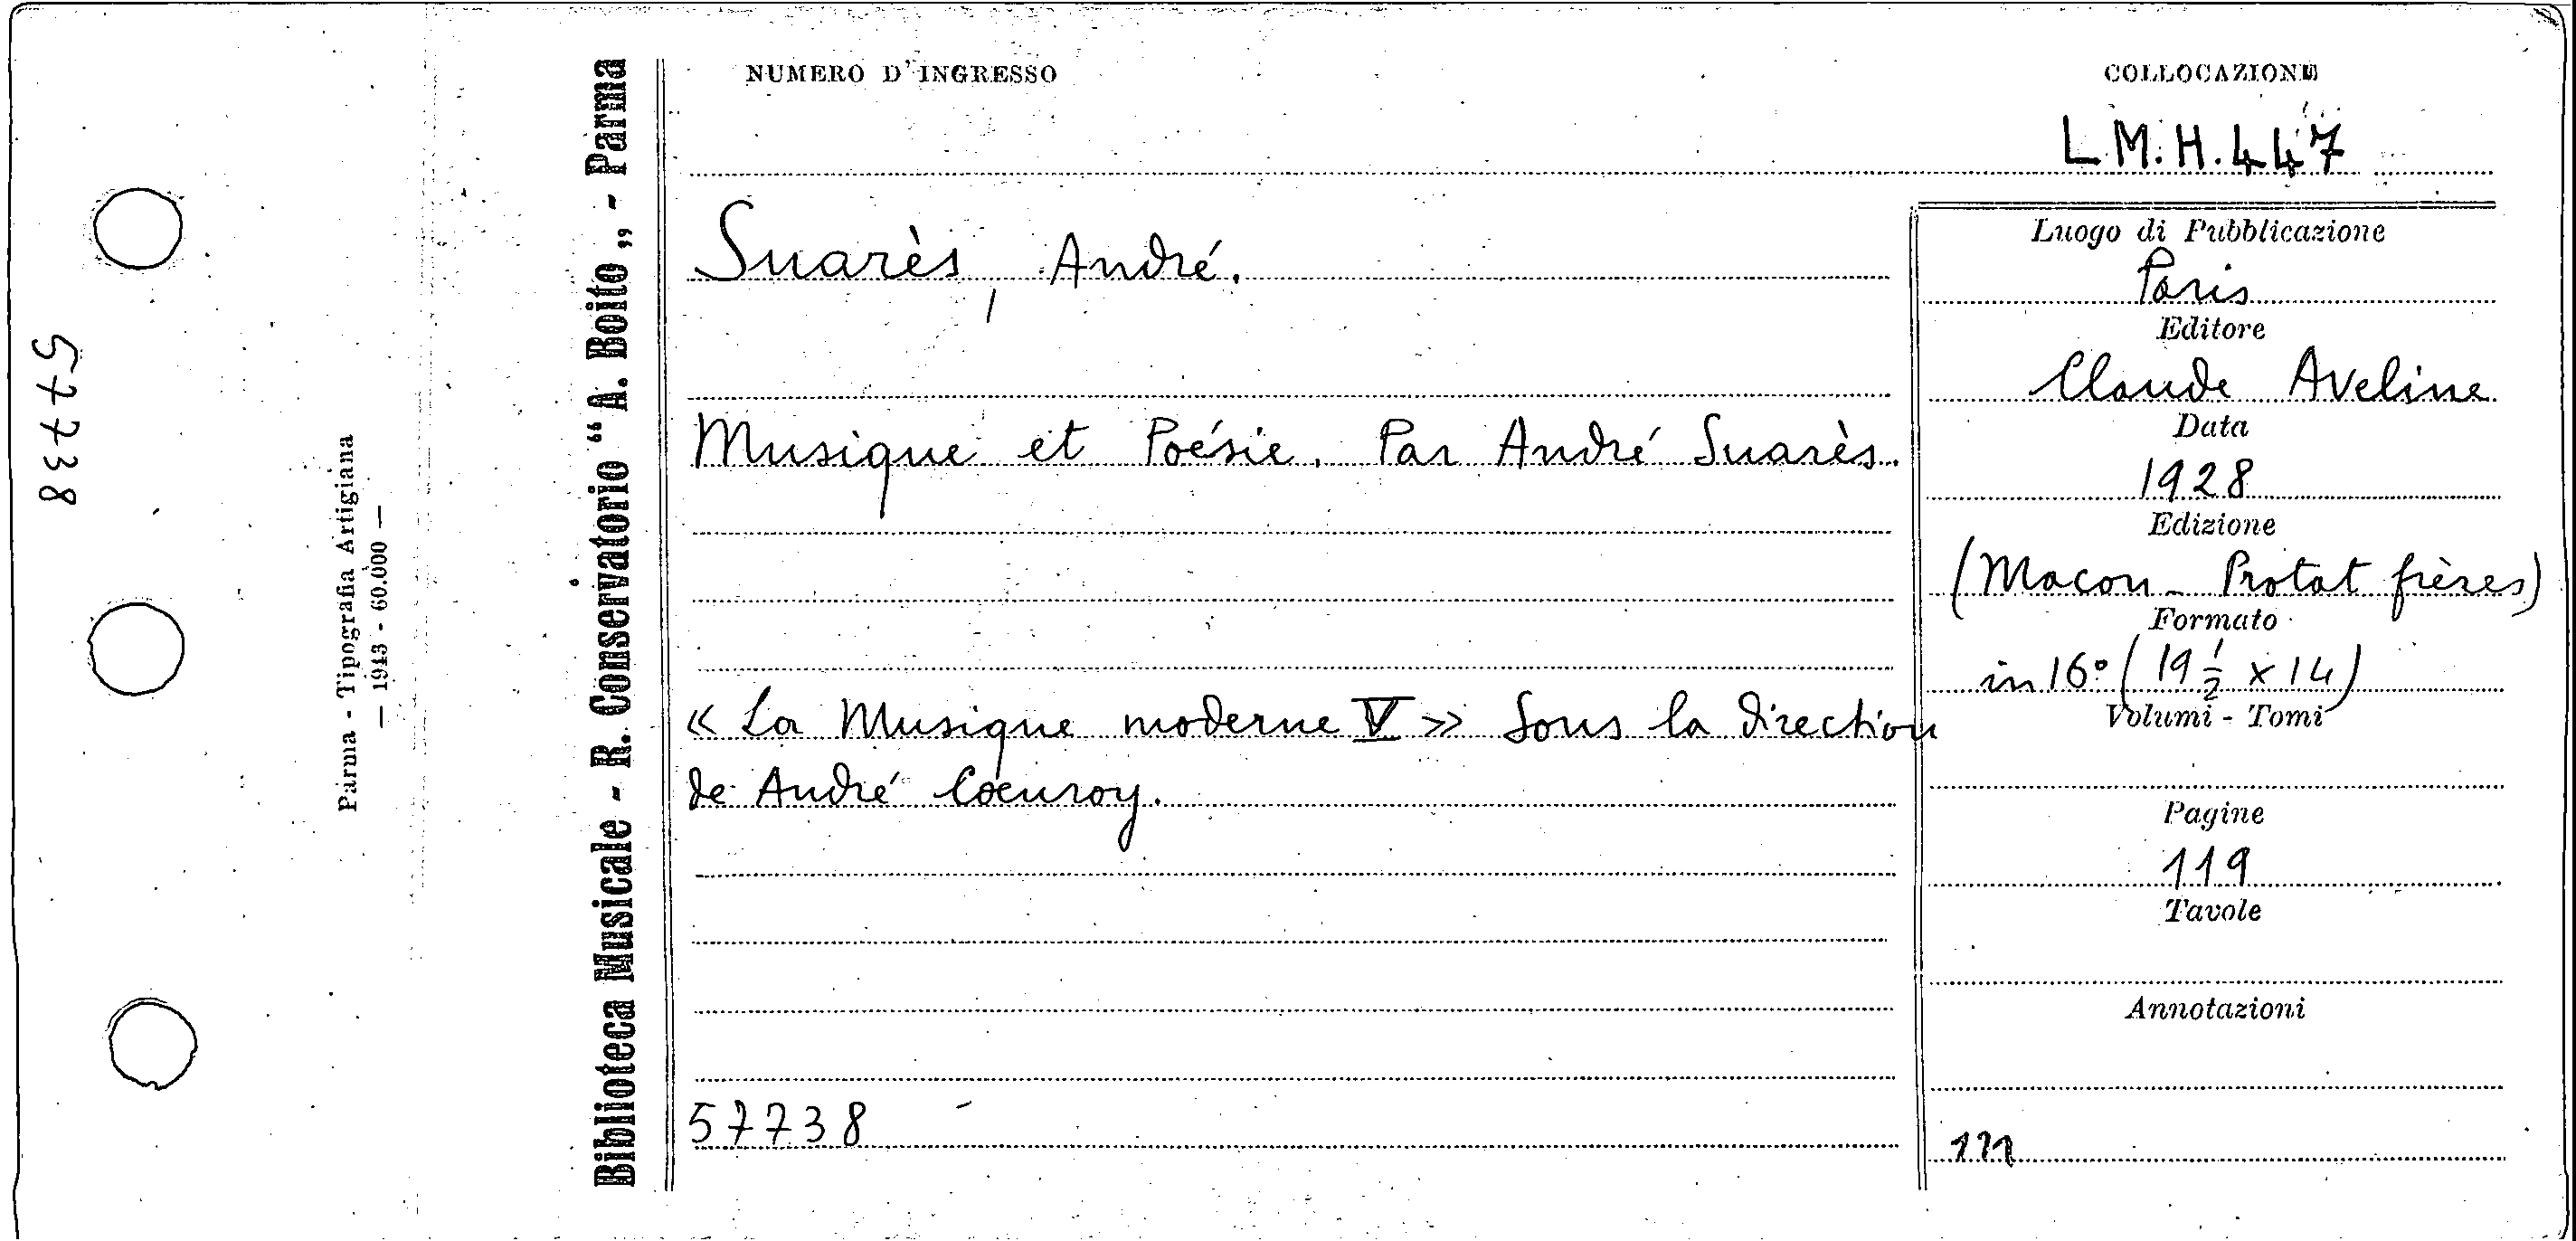 NUMERO D'INGRESSO
COLLOCAZIONE
L.M.H.447
Suarès, André.
Musique et Poésie. Par André Suarès.
« La Musique moderne V » Sous la direction
de André Coeuroy.
57738
Luogo di Pubblicazione
Paris
Editore
Claude Aveline
Data
1928
Edizione
(Macon - Protat frères)
Formato
in 16° (19 1/2 x 14)
Volumi - Tomi
Pagine
119
Tavole
Annotazioni
Biblioteca Musicale - R. Conservatorio “A. Boito„ - Parma
Parma - Tipografia Artigiana
— 1943 - 60.000 —
57738